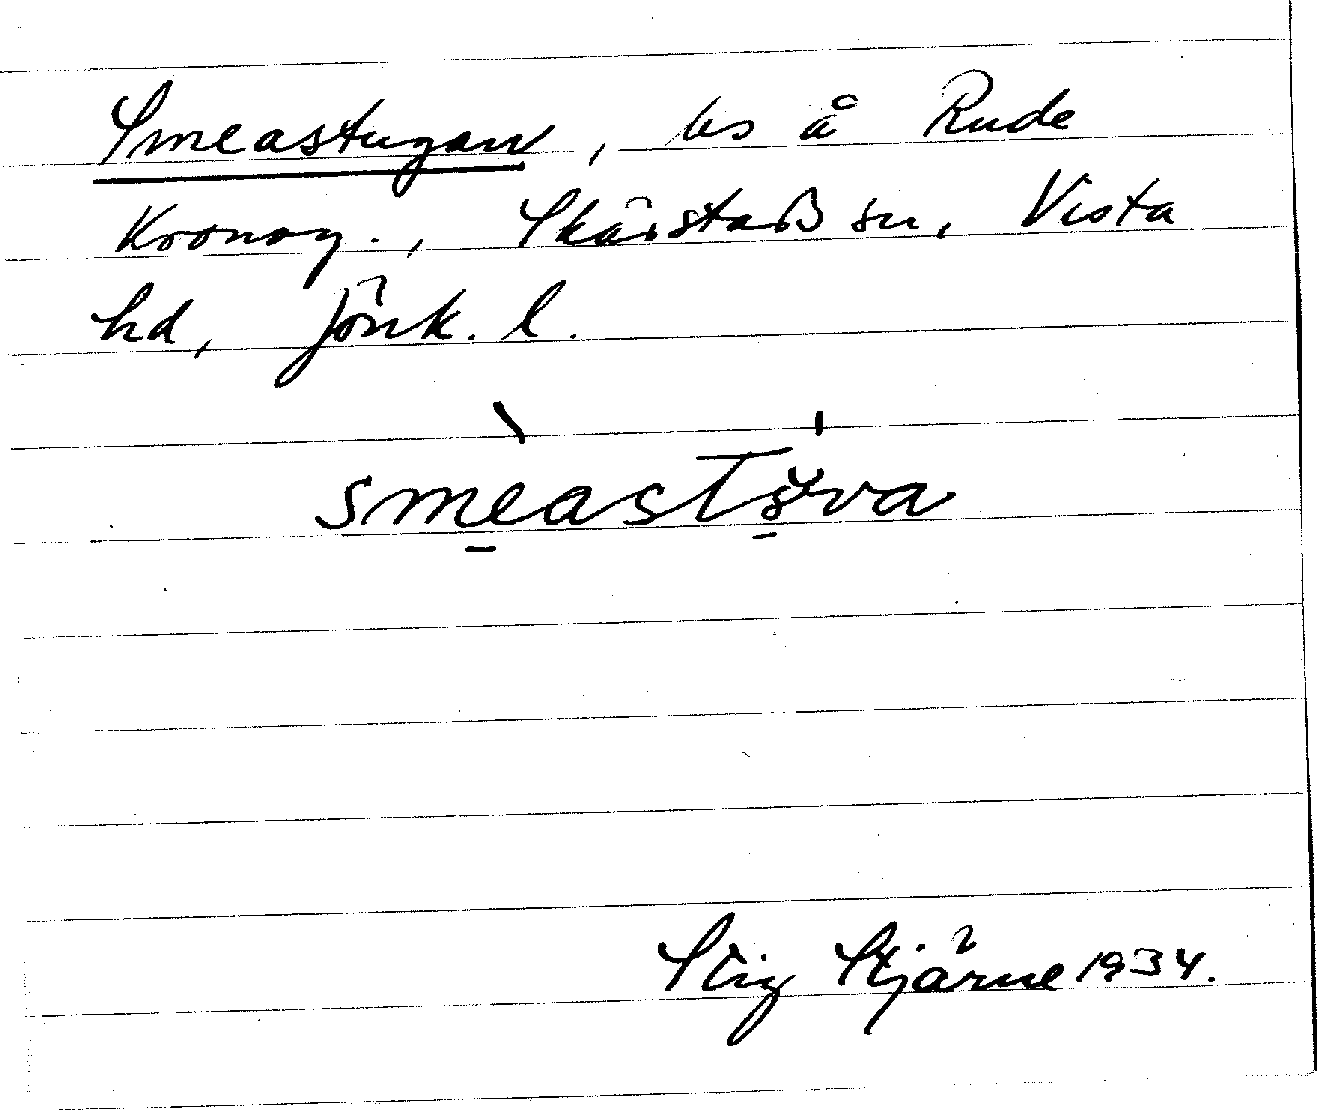 Smeastugan, bs å Rude
Kronog., Skärstads sn, Vista
hd, Jönk. l.
smèastv̆va
Stig Stjärne 1934.